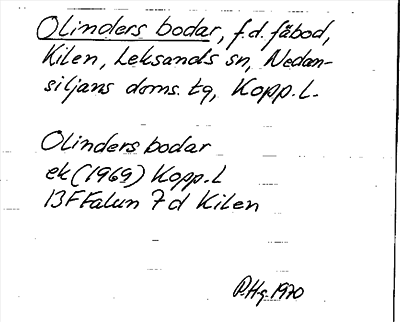 Olinders bodar, f.d. fäbod,
Kilen, Leksands sn, Nedan-
siljans doms. tg, Kopp. L.
Olinders bodar
ek (1969) Kopp. L
13F Falun 7d Kilen
P.Hg. 1970